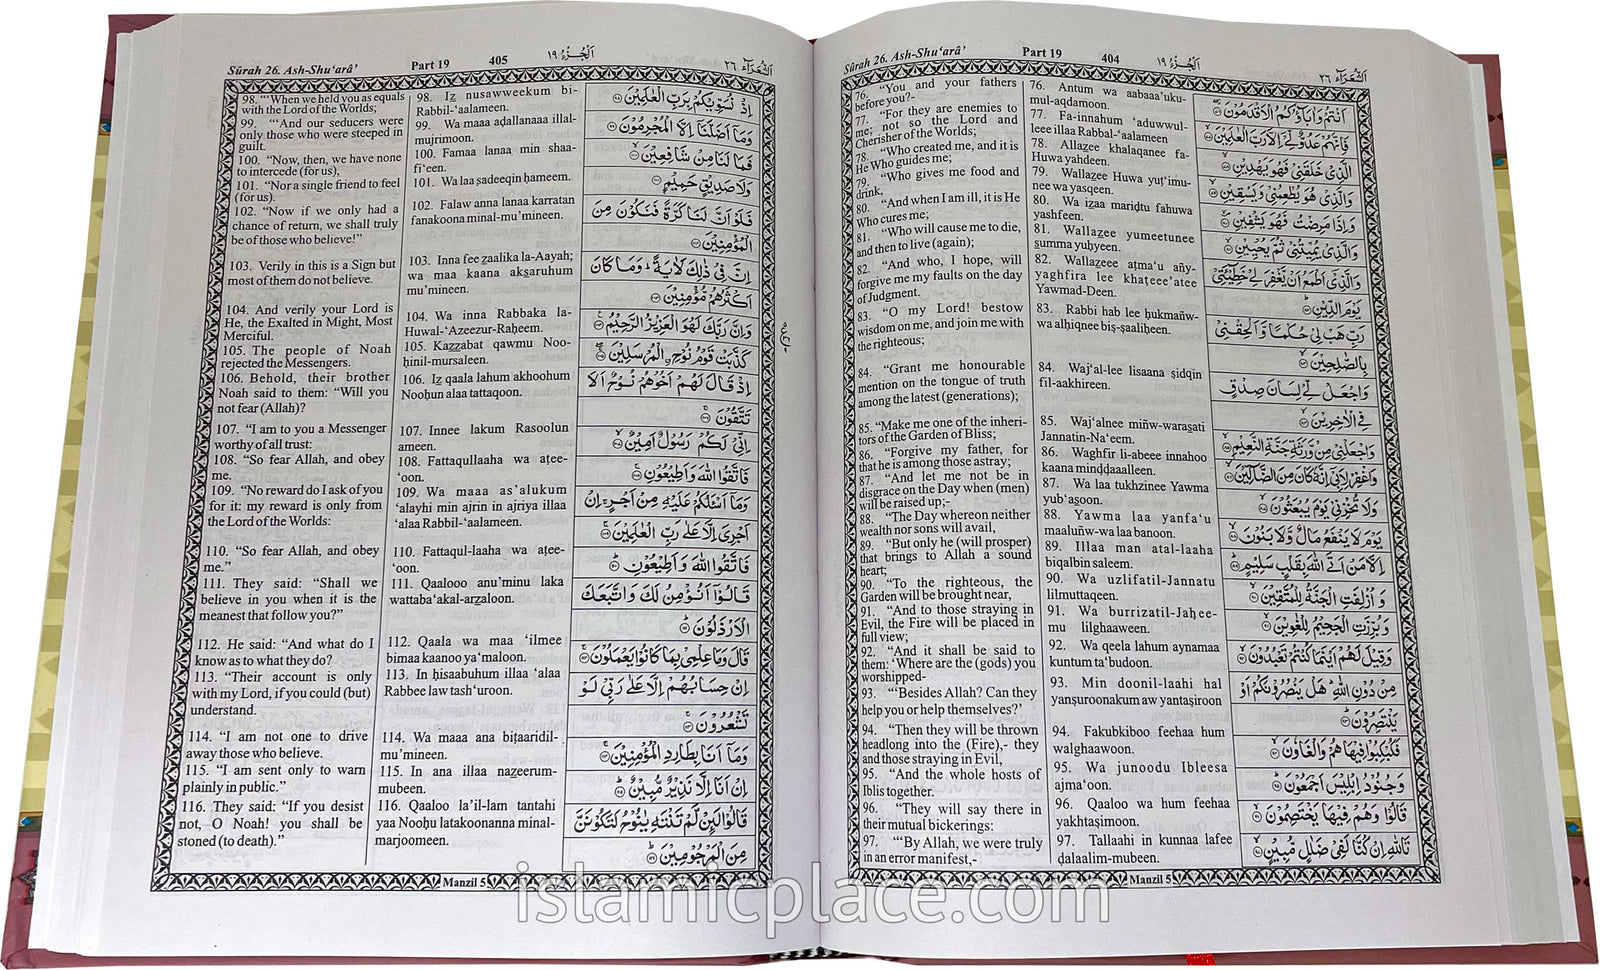 Sûrah 26. Ash-Shu‘arâ’
Part 19
404
اَلْجُزْءُ ١٩
اَلشُّعَرَآءُ ٢٦
76. “You and your fathers
before you?-
77. “For they are enemies to
me; not so the Lord and
Cherisher of the Worlds;
78. “Who created me, and it is
He Who guides me;
79. “Who gives me food and
drink,
80. “And when I am ill, it is He
Who cures me;
81. “Who will cause me to die,
and then to live (again);
82. “And who, I hope, will
forgive me my faults on the day
of Judgment.
83. “O my Lord! bestow
wisdom on me, and join me with
the righteous;
84. “Grant me honourable
mention on the tongue of truth
among the latest (generations);
85. “Make me one of the inheri-
tors of the Garden of Bliss;
86. “Forgive my father, for
that he is among those astray;
87. “And let me not be in
disgrace on the Day when (men)
will be raised up;-
88. “The Day whereon neither
wealth nor sons will avail,
89. “But only he (will prosper)
that brings to Allah a sound
heart;
90. “To the righteous, the
Garden will be brought near,
91. “And to those straying in
Evil, the Fire will be placed in
full view;
92. “And it shall be said to
them: ‘Where are the (gods) you
worshipped-
93. “‘Besides Allah? Can they
help you or help themselves?’
94. “Then they will be thrown
headlong into the (Fire),- they
and those straying in Evil,
95. “And the whole hosts of
Iblis together.
96. “They will say there in
their mutual bickerings:
97. “‘By Allah, we were truly
in an error manifest,-
76. Antum wa aabaaa’uku-
mul-aqdamoon.
77. Fa-innahum ‘aduwwul-
leee illaa Rabbal-‘aalameen
78. Allaẕee khalaqanee fa-
Huwa yahdeen.
79. Wallaẕee Huwa yuṭ‘imu-
nee wa yasqeen.
80. Wa iẕaa mariḍtu fahuwa
yashfeen.
81. Wallaẕee yumeetunee
s̱umma yuḥyeen.
82. Wallaẕeee aṭma‘u añy-
yaghfira lee khaṭeee’atee
Yawmad-Deen.
83. Rabbi hab lee ḥukmañw-
wa alḥiqnee biṣ-ṣaaliḥeen.
84. Waj‘al-lee lisaana ṣidqin
fil-aakhireen.
85. Waj‘alnee miñw-waras̱ati
Jannatin-Na‘eem.
86. Waghfir li-abeee innahoo
kaana minḍḍaaalleen.
87. Wa laa tukhzinee Yawma
yub‘as̱oon.
88. Yawma laa yanfa‘u
maaluñw-wa laa banoon.
89. Illaa man atal-laaha
biqalbin saleem.
90. Wa uzlifatil-Jannatu
lilmuttaqeen.
91. Wa burrizatil-Jaḥee-
mu lilghaaween.
92. Wa qeela lahum aynamaa
kuntum ta‘budoon.
93. Min doonil-laahi hal
yanṣuroonakum aw yantaṣiroon
94. Fakubkiboo feehaa hum
walghaawoon.
95. Wa junoodu Ibleesa
ajma‘oon.
96. Qaaloo wa hum feehaa
yakhtaṣimoon.
97. Tallaahi in kunnaa lafee
ḍalaalim-mubeen.
اَنْتُمْ وَاٰبَآؤُكُمُ الْاَقْدَمُوْنَ ۟ۖ
فَاِنَّهُمْ عَدُوٌّ لِّيْۤ اِلَّا رَبَّ الْعٰلَمِيْنَ ۟ۙ
الَّذِيْ خَلَقَنِيْ فَهُوَ يَهْدِيْنِ ۟ۙ
وَالَّذِيْ هُوَ يُطْعِمُنِيْ وَيَسْقِيْنِ ۟ۙ
وَاِذَا مَرِضْتُ فَهُوَ يَشْفِيْنِ ۟ۙ
وَالَّذِيْ يُمِيْتُنِيْ ثُمَّ يُحْيِيْنِ ۟ۙ
وَالَّذِيْۤ اَطْمَعُ اَنْ يَّغْفِرَ لِيْ خَطِيْٓـَٔتِيْ
يَوْمَ الدِّيْنِ ۟ؕ
رَبِّ هَبْ لِيْ حُكْمًا وَّاَلْحِقْنِيْ
بِالصّٰلِحِيْنَ ۟ۙ
وَاجْعَلْ لِّيْ لِسَانَ صِدْقٍ
فِي الْاٰخِرِيْنَ ۟ۙ
وَاجْعَلْنِيْ مِنْ وَّرَثَةِ جَنَّةِ النَّعِيْمِ ۟ۙ
وَاغْفِرْ لِاَبِيْۤ اِنَّهٗ كَانَ مِنَ الضَّآلِّيْنَ ۟ۙ
وَلَا تُخْزِنِيْ يَوْمَ يُبْعَثُوْنَ ۟ۙ
يَوْمَ لَا يَنْفَعُ مَالٌ وَّلَا بَنُوْنَ ۟ۙ
اِلَّا مَنْ اَتَى اللّٰهَ بِقَلْبٍ سَلِيْمٍ ۟ؕ
وَاُزْلِفَتِ الْجَنَّةُ لِلْمُتَّقِيْنَ ۟ۙ
وَبُرِّزَتِ الْجَحِيْمُ لِلْغٰوِيْنَ ۟ۙ
وَقِيْلَ لَهُمْ اَيْنَمَا كُنْتُمْ تَعْبُدُوْنَ ۟ۙ
مِنْ دُوْنِ اللّٰهِ ؕ هَلْ يَنْصُرُوْنَكُمْ اَوْ
يَنْتَصِرُوْنَ ۟ؕ
فَكُبْكِبُوْا فِيْهَا هُمْ وَالْغَاوٗنَ ۟ۙ
وَجُنُوْدُ اِبْلِيْسَ اَجْمَعُوْنَ ۟ؕ
قَالُوْا وَهُمْ فِيْهَا يَخْتَصِمُوْنَ ۟ۙ
تَاللّٰهِ اِنْ كُنَّا لَفِيْ ضَلٰلٍ مُّبِيْنٍ ۟ۙ
Manzil 5
Sûrah 26. Ash-Shu‘arâ’
Part 19
405
اَلْجُزْءُ ١٩
اَلشُّعَرَآءُ ٢٦
98. “‘When we held you as equals
with the Lord of the Worlds;
99. “‘And our seducers were
only those who were steeped in
guilt.
100. “‘Now, then, we have none
to intercede (for us),
101. “‘Nor a single friend to feel
(for us).
102. “‘Now if we only had a
chance of return, we shall truly
be of those who believe!’”
103. Verily in this is a Sign but
most of them do not believe.
104. And verily your Lord is
He, the Exalted in Might, Most
Merciful.
105. The people of Noah
rejected the Messengers.
106. Behold, their brother
Noah said to them: “Will you
not fear (Allah)?
107. “I am to you a Messenger
worthy of all trust:
108. “So fear Allah, and obey
me.
109. “No reward do I ask of you
for it: my reward is only from
the Lord of the Worlds:
110. “So fear Allah, and obey
me.”
111. They said: “Shall we
believe in you when it is the
meanest that follow you?”
112. He said: “And what do I
know as to what they do?
113. “Their account is only
with my Lord, if you could (but)
understand.
114. “I am not one to drive
away those who believe.
115. “I am sent only to warn
plainly in public.”
116. They said: “If you desist
not, O Noah! you shall be
stoned (to death).”
98. Iẕ nusawweekum bi-
Rabbil-‘aalameen.
99. Wa maaa aḍallanaaa illal-
mujrimoon.
100. Famaa lanaa min shaa-
fi‘een.
101. Wa laa ṣadeeqin ḥameem.
102. Falaw anna lanaa karratan
fanakoona minal-mu’mineen.
103. Inna fee ẕaalika la-Aayah;
wa maa kaana aks̱aruhum
mu’mineen.
104. Wa inna Rabbaka la-
Huwal-‘Azeezur-Raḥeem.
105. Kaẕẕabat qawmu Noo-
ḥinil-mursaleen.
106. Iẕ qaala lahum akhoohum
Nooḥun alaa tattaqoon.
107. Innee lakum Rasoolun
ameen.
108. Fattaqullaaha wa aṭee-
‘oon.
109. Wa maaa as’alukum
‘alayhi min ajrin in ajriya illaa
‘alaa Rabbil-‘aalameen.
110. Fattaqul-laaha wa aṭee-
‘oon.
111. Qaalooo anu’minu laka
wattaba‘akal-arẕaloon.
112. Qaala wa maa ‘ilmee
bimaa kaanoo ya‘maloon.
113. In ḥisaabuhum illaa ‘alaa
Rabbee law tash‘uroon.
114. Wa maaa ana biṭaaridil-
mu’mineen.
115. In ana illaa naẕeerum-
mubeen.
116. Qaaloo la’il-lam tantahi
yaa Nooḥu latakoonanna minal-
marjoomeen.
اِذْ نُسَوِّيْكُمْ بِرَبِّ الْعٰلَمِيْنَ ۟
وَمَاۤ اَضَلَّنَاۤ اِلَّا الْمُجْرِمُوْنَ ۟
فَمَا لَنَا مِنْ شَافِعِيْنَ ۟ۙ
وَلَا صَدِيْقٍ حَمِيْمٍ ۟
فَلَوْ اَنَّ لَنَا كَرَّةً فَنَكُوْنَ مِنَ
الْمُؤْمِنِيْنَ ۟
اِنَّ فِيْ ذٰلِكَ لَاٰيَةً ؕ وَمَا كَانَ
اَكْثَرُهُمْ مُّؤْمِنِيْنَ ۟
وَاِنَّ رَبَّكَ لَهُوَ الْعَزِيْزُ الرَّحِيْمُ ۟
كَذَّبَتْ قَوْمُ نُوْحِ ِ۟الْمُرْسَلِيْنَ ۟
اِذْ قَالَ لَهُمْ اَخُوْهُمْ نُوْحٌ اَلَا
تَتَّقُوْنَ ۟ۚ
اِنِّيْ لَكُمْ رَسُوْلٌ اَمِيْنٌ ۟ۙ
فَاتَّقُوا اللّٰهَ وَاَطِيْعُوْنِ ۟ۚ
وَمَاۤ اَسْـَٔلُكُمْ عَلَيْهِ مِنْ اَجْرٍ ۚ اِنْ
اَجْرِيَ اِلَّا عَلٰى رَبِّ الْعٰلَمِيْنَ ۟ۚ
فَاتَّقُوا اللّٰهَ وَاَطِيْعُوْنِ ۟ؕ
قَالُوْۤا اَنُؤْمِنُ لَكَ وَاتَّبَعَكَ
الْاَرْذَلُوْنَ ۟ؕ
قَالَ وَمَا عِلْمِيْ بِمَا كَانُوْا يَعْمَلُوْنَ ۟ۚ
اِنْ حِسَابُهُمْ اِلَّا عَلٰى رَبِّيْ لَوْ
تَشْعُرُوْنَ ۟ۚ
وَمَاۤ اَنَا بِطَارِدِ الْمُؤْمِنِيْنَ ۟ۚ
اِنْ اَنَا اِلَّا نَذِيْرٌ مُّبِيْنٌ ۟ؕ
قَالُوْا لَىِٕنْ لَّمْ تَنْتَهِ يٰنُوْحُ لَتَكُوْنَنَّ
مِنَ الْمَرْجُوْمِيْنَ ۟ؕ
Manzil 5
islamicplace.com